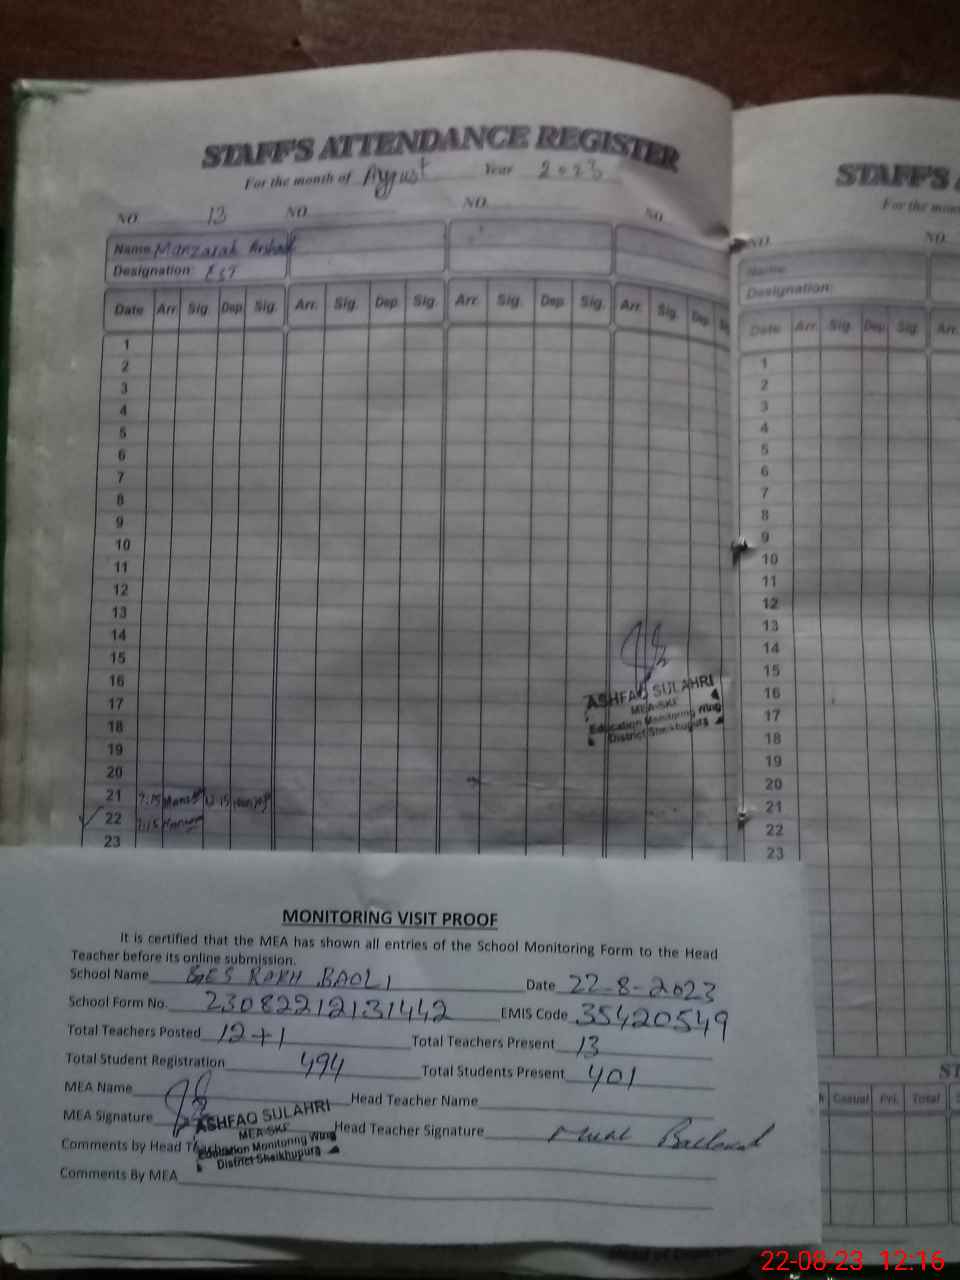 STAFF'S ATTENDANCE REGISTER
For the month of August Year 2023
NO. 13 NO. NO. NO.
Name: Manzarah Arshad
Designation: EST
Date Arr. Sig. Dep. Sig. Arr. Sig. Dep. Sig. Arr. Sig. Dep. Sig. Arr. Sig. Dep.
1
2
3
4
5
6
7
8
9
10
11
12
13
14
15
16
17
18
19
20
21 7:15
22 7:15
23
ASHFAQ SULAHRI
MEA-SKF
Education Monitoring Wing
District Sheikhupura
STAFF'S
For the
NO. NO.
Name:
Designation:
Date Arr. Sig. Dep. Sig. Arr.
1
2
3
4
5
6
7
8
9
10
11
12
13
14
15
16
17
18
19
20
21
22
23
Casual Pri. Total
MONITORING VISIT PROOF
It is certified that the MEA has shown all entries of the School Monitoring Form to the Head
Teacher before its online submission.
School Name GGES RAKH BAOLI Date 22-8-2023
School Form No. 23082212131442 EMIS Code 35420549
Total Teachers Posted 12+1 Total Teachers Present 13
Total Student Registration 494 Total Students Present 401
MEA Name Head Teacher Name
MEA Signature Head Teacher Signature
ASHFAQ SULAHRI
MEA-SKF
Education Monitoring Wing
District Sheikhupura
Comments by Head
Comments By MEA
22-08-23 12:16